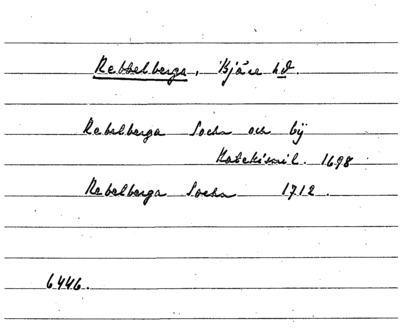 Rebbelberga, Bjäre hd.
Rebelberga Sochn och bÿ
1698
Rebelberga Sochn 1712.
6446.